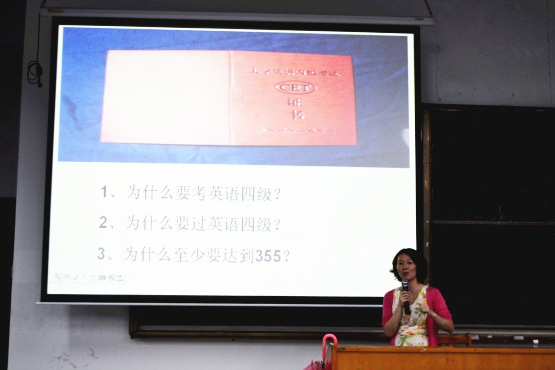 大学英语四级考试
CET
证
书
1、为什么要考英语四级?
2、为什么要过英语四级?
3、为什么至少要达到355?